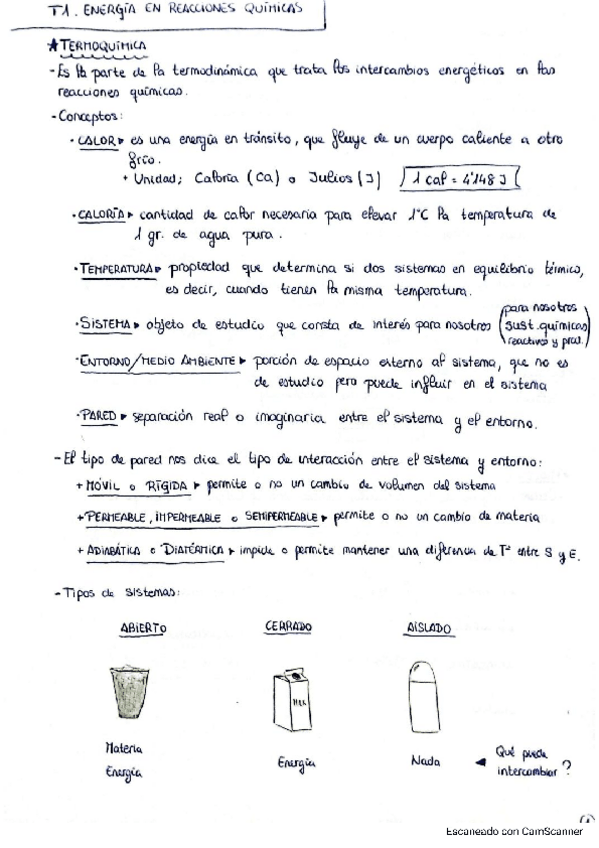 T1. ENERGÍA EN REACCIONES QUÍMICAS
★TERMOQUÍMICA
- Es la parte de la termodinámica que trata los intercambios energéticos en las
reacciones químicas.
- Conceptos:
· CALOR ▸ es una energía en tránsito, que fluye de un cuerpo caliente a otro
frío.
+ Unidad; Caloría (Ca) o Julios (J) 1 cal = 4'148 J
· CALORÍA ▸ cantidad de calor necesaria para elevar 1°C la temperatura de
1 gr. de agua pura.
· TEMPERATURA ▸ propiedad que determina si dos sistemas en equilibrio térmico,
es decir, cuando tienen la misma temperatura.
· SISTEMA ▸ objeto de estudio que consta de interés para nosotros (para nosotros
sust. químicas
reactivos y prod.)
· ENTORNO/MEDIO AMBIENTE ▸ porción de espacio externo al sistema, que no es
de estudio pero puede influir en el sistema
· PARED ▸ separación real o imaginaria entre el sistema y el entorno.
- El tipo de pared nos dice el tipo de interacción entre el sistema y entorno:
+ MÓVIL o RÍGIDA ▸ permite o no un cambio de volumen del sistema
+ PERMEABLE, IMPERMEABLE o SEMIPERMEABLE ▸ permite o no un cambio de materia
+ ADIABÁTICA o DIATÉRMICA ▸ impide o permite mantener una diferencia de Tª entre S y E.
- Tipos de sistemas:
ABIERTO CERRADO AISLADO
MILK
Materia
Energía
Energía
Nada
◂ Qué puede
intercambiar?
Escaneado con CamScanner